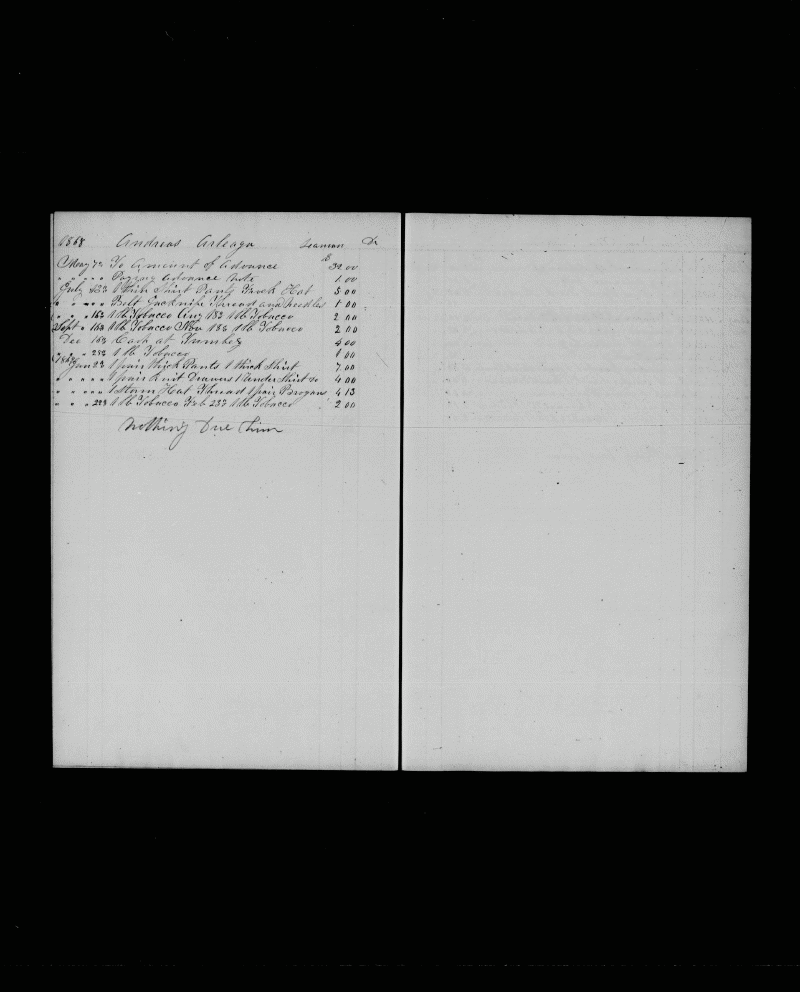 1868 Andreas Arleaga Seaman Dr
$
May 7th To Amount of Advance 32 00
" " " " Paying Advance Note 1 00
July 1 Thin Shirt Pants Hat 5 00
" " " " Belt Jacknife Thread and needles 1 00
" " " 16th 1 lb Tobacco Aug 18th 1 lb Tobacco 2 00
Sept " 16th 1 lb Tobacco Nov 18th 1 lb Tobacco 2 00
Dec 15th Cash at 4 00
" " " 28th 1 lb Tobacco 1 00
1869
Jan 2d 1 pair thick Pants 1 thick Shirt 7 00
" " " " " 1 pair Knit Drawers 1 Under Shirt Do 4 00
" " " " " Hat Thread 1 pair Brogans 4 13
" " " 22d 1 lb Tobacco Feb 23d 1 lb Tobacco 2 00
Nothing Due him